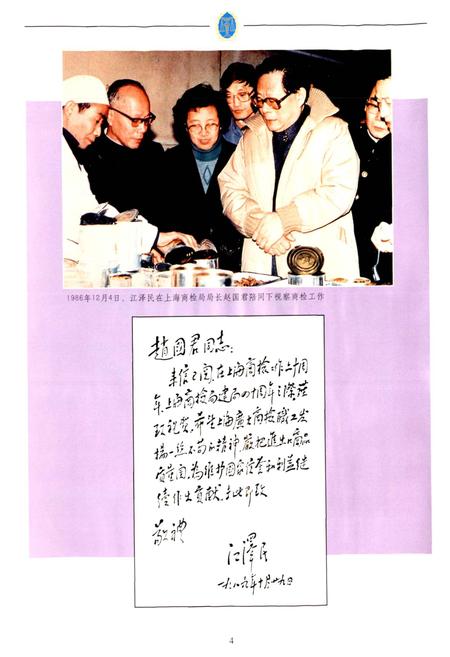 1986年12月4日，江泽民在上海商检局局长赵国君陪同下视察商检工作
趙國君同志：
来信已阅，在上海商检工作十周
年，上海商检局建局四十周年之际，谨
致祝贺。希望上海广大商检职工发
扬一丝不苟的精神，严把进出口商品
质量关，为维护国家信誉和利益继
续作出贡献。
敬礼
江澤民
一九八九年十月廿九日
4